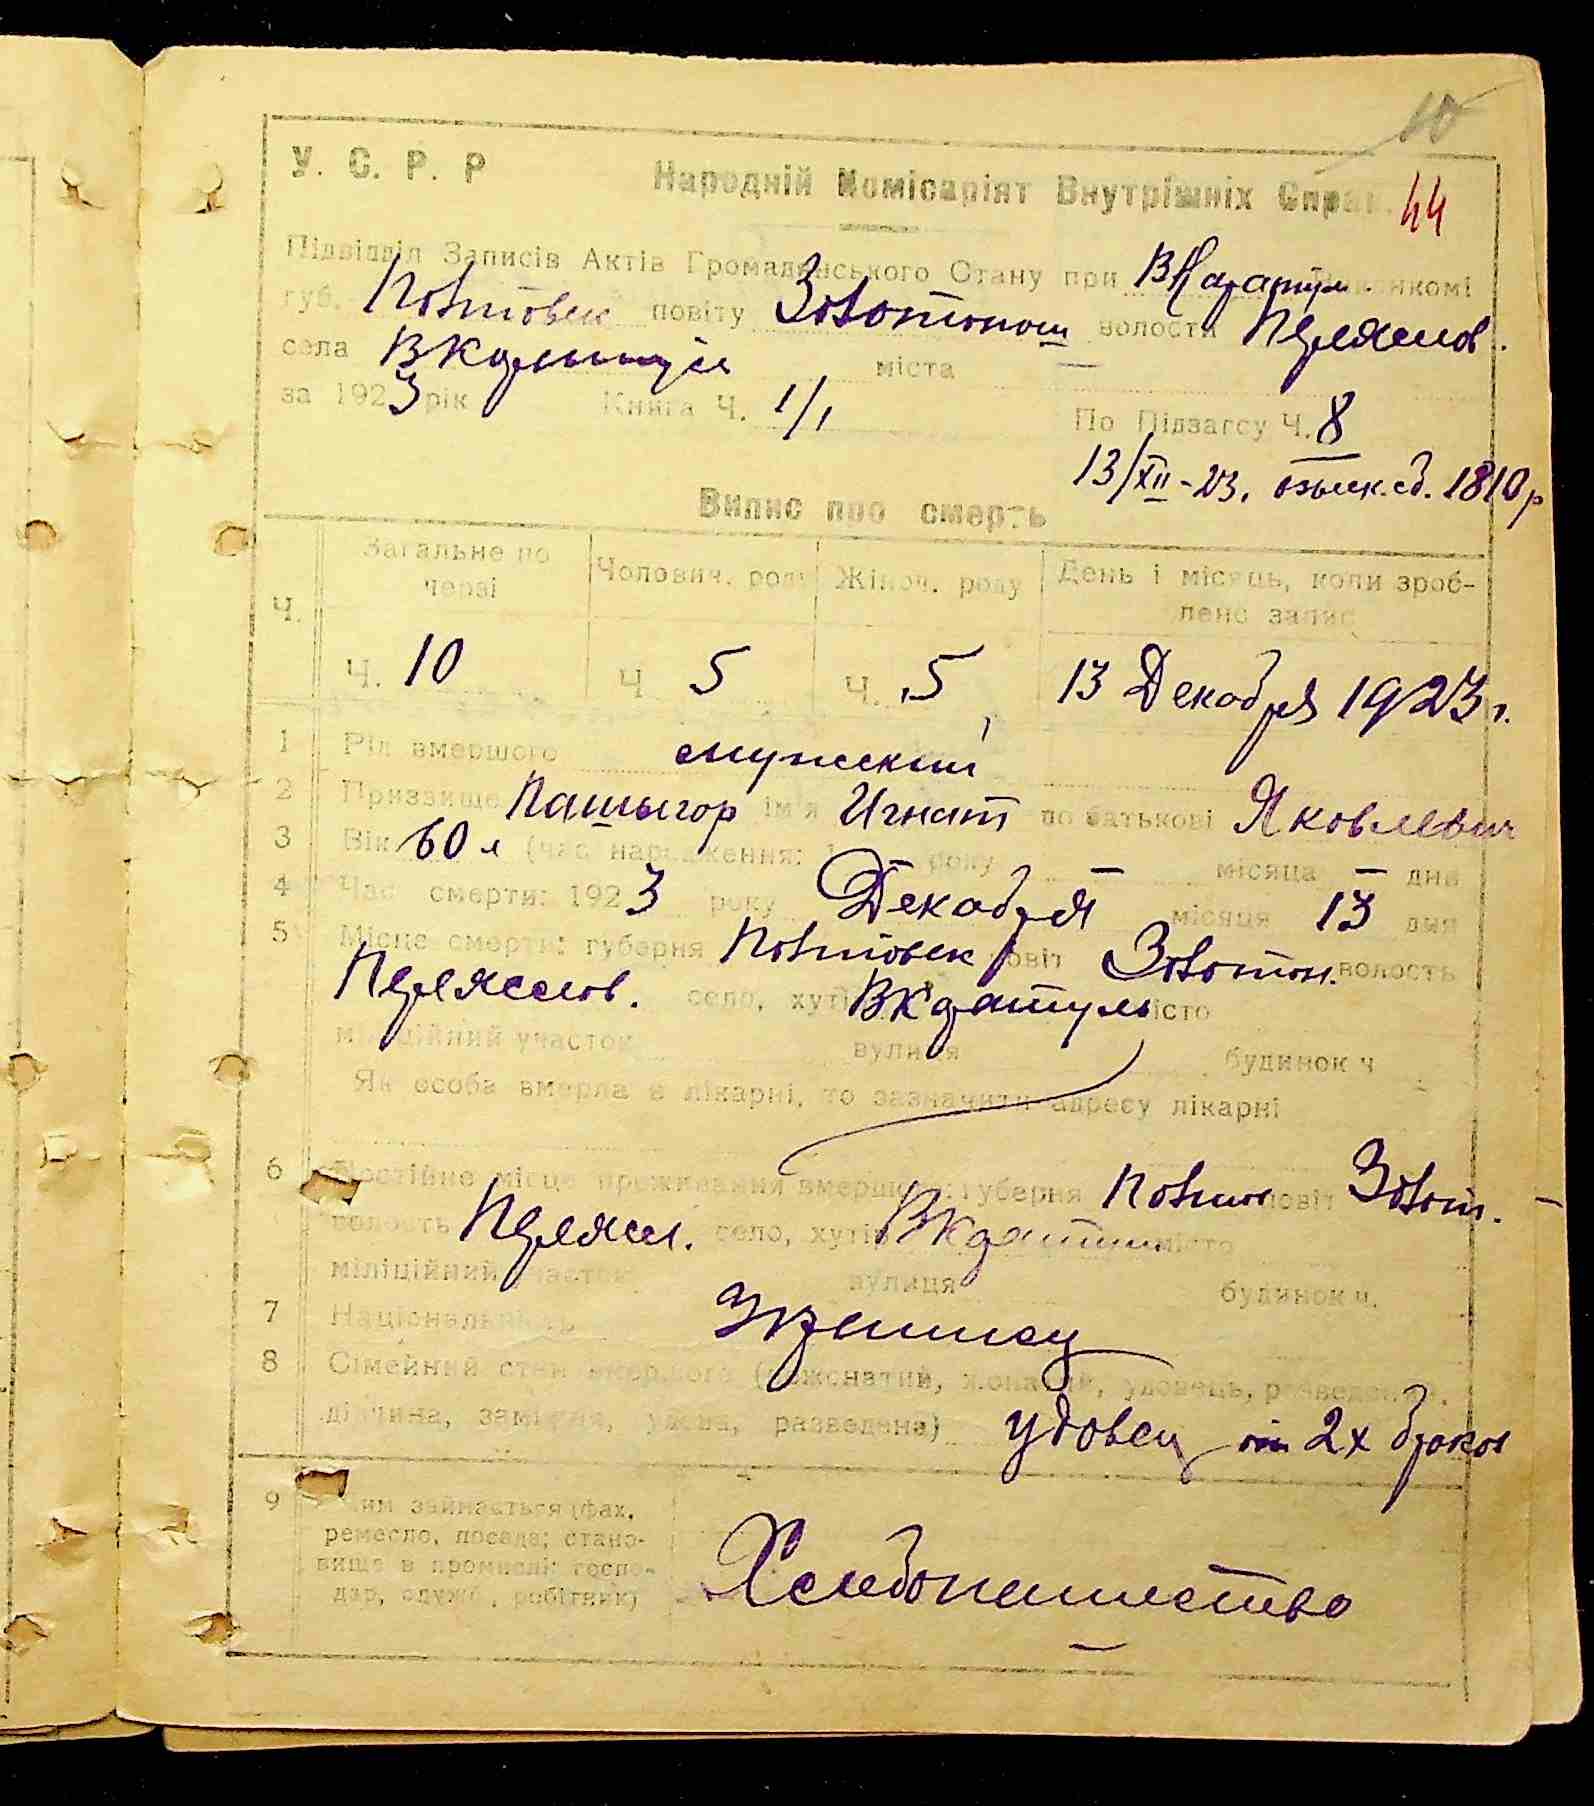 10
У. С. Р. Р Народній Комісаріят Внутрішніх Справ. 44
Підвідділ Записів Актів Громадянського Стану при ВКаратул.
губ. Полтовск повіту Золотонош волости Переяслов.
села міста —
за 1923 рік Книга Ч. 1/1 По Підзагсу Ч. 8
13/XII-23. 1810р
Випис про смерть
Ч. Загальне по черзі Чоловіч. роду Жіноч. роду День і місяць, коли зроблено запис
Ч. 10 Ч 5 Ч. 5 13 Декабря 1923 г.
1 Рід вмершого мужский
2 Призвище ім'я Игнат по батькові Яковлевич
3 Вік 60 л (час народження: 1 року — місяца — дня
4 Час смерти: 1923 року Декабря місяця 13 дня
5 Місце смерти: губерня Полтовск повіт Золотон. волость
Переяслов. село, хутір ВКаратуль місто
міліційний участок вулиця будинок ч
Як особа вмерла в лікарні, то зазначити адресу лікарні
6 Постійне місце проживання вмершого: губерня Полтов повіт Золот.
волость Переясл. село, хутір ВКаратуль місто
міліційний участок вулиця будинок ч.
7 Національність Украинец
8 Сімейний стан вмершого (нежонатий, жонатий, удовець, разведений,
дівчина, замужня, удова, разведена) удовец от 2х браков
9 Чим займається (фах,
ремесло, посада; стано-
вище в промислі: госпо-
дар, служб., робітник) Хлебопашество